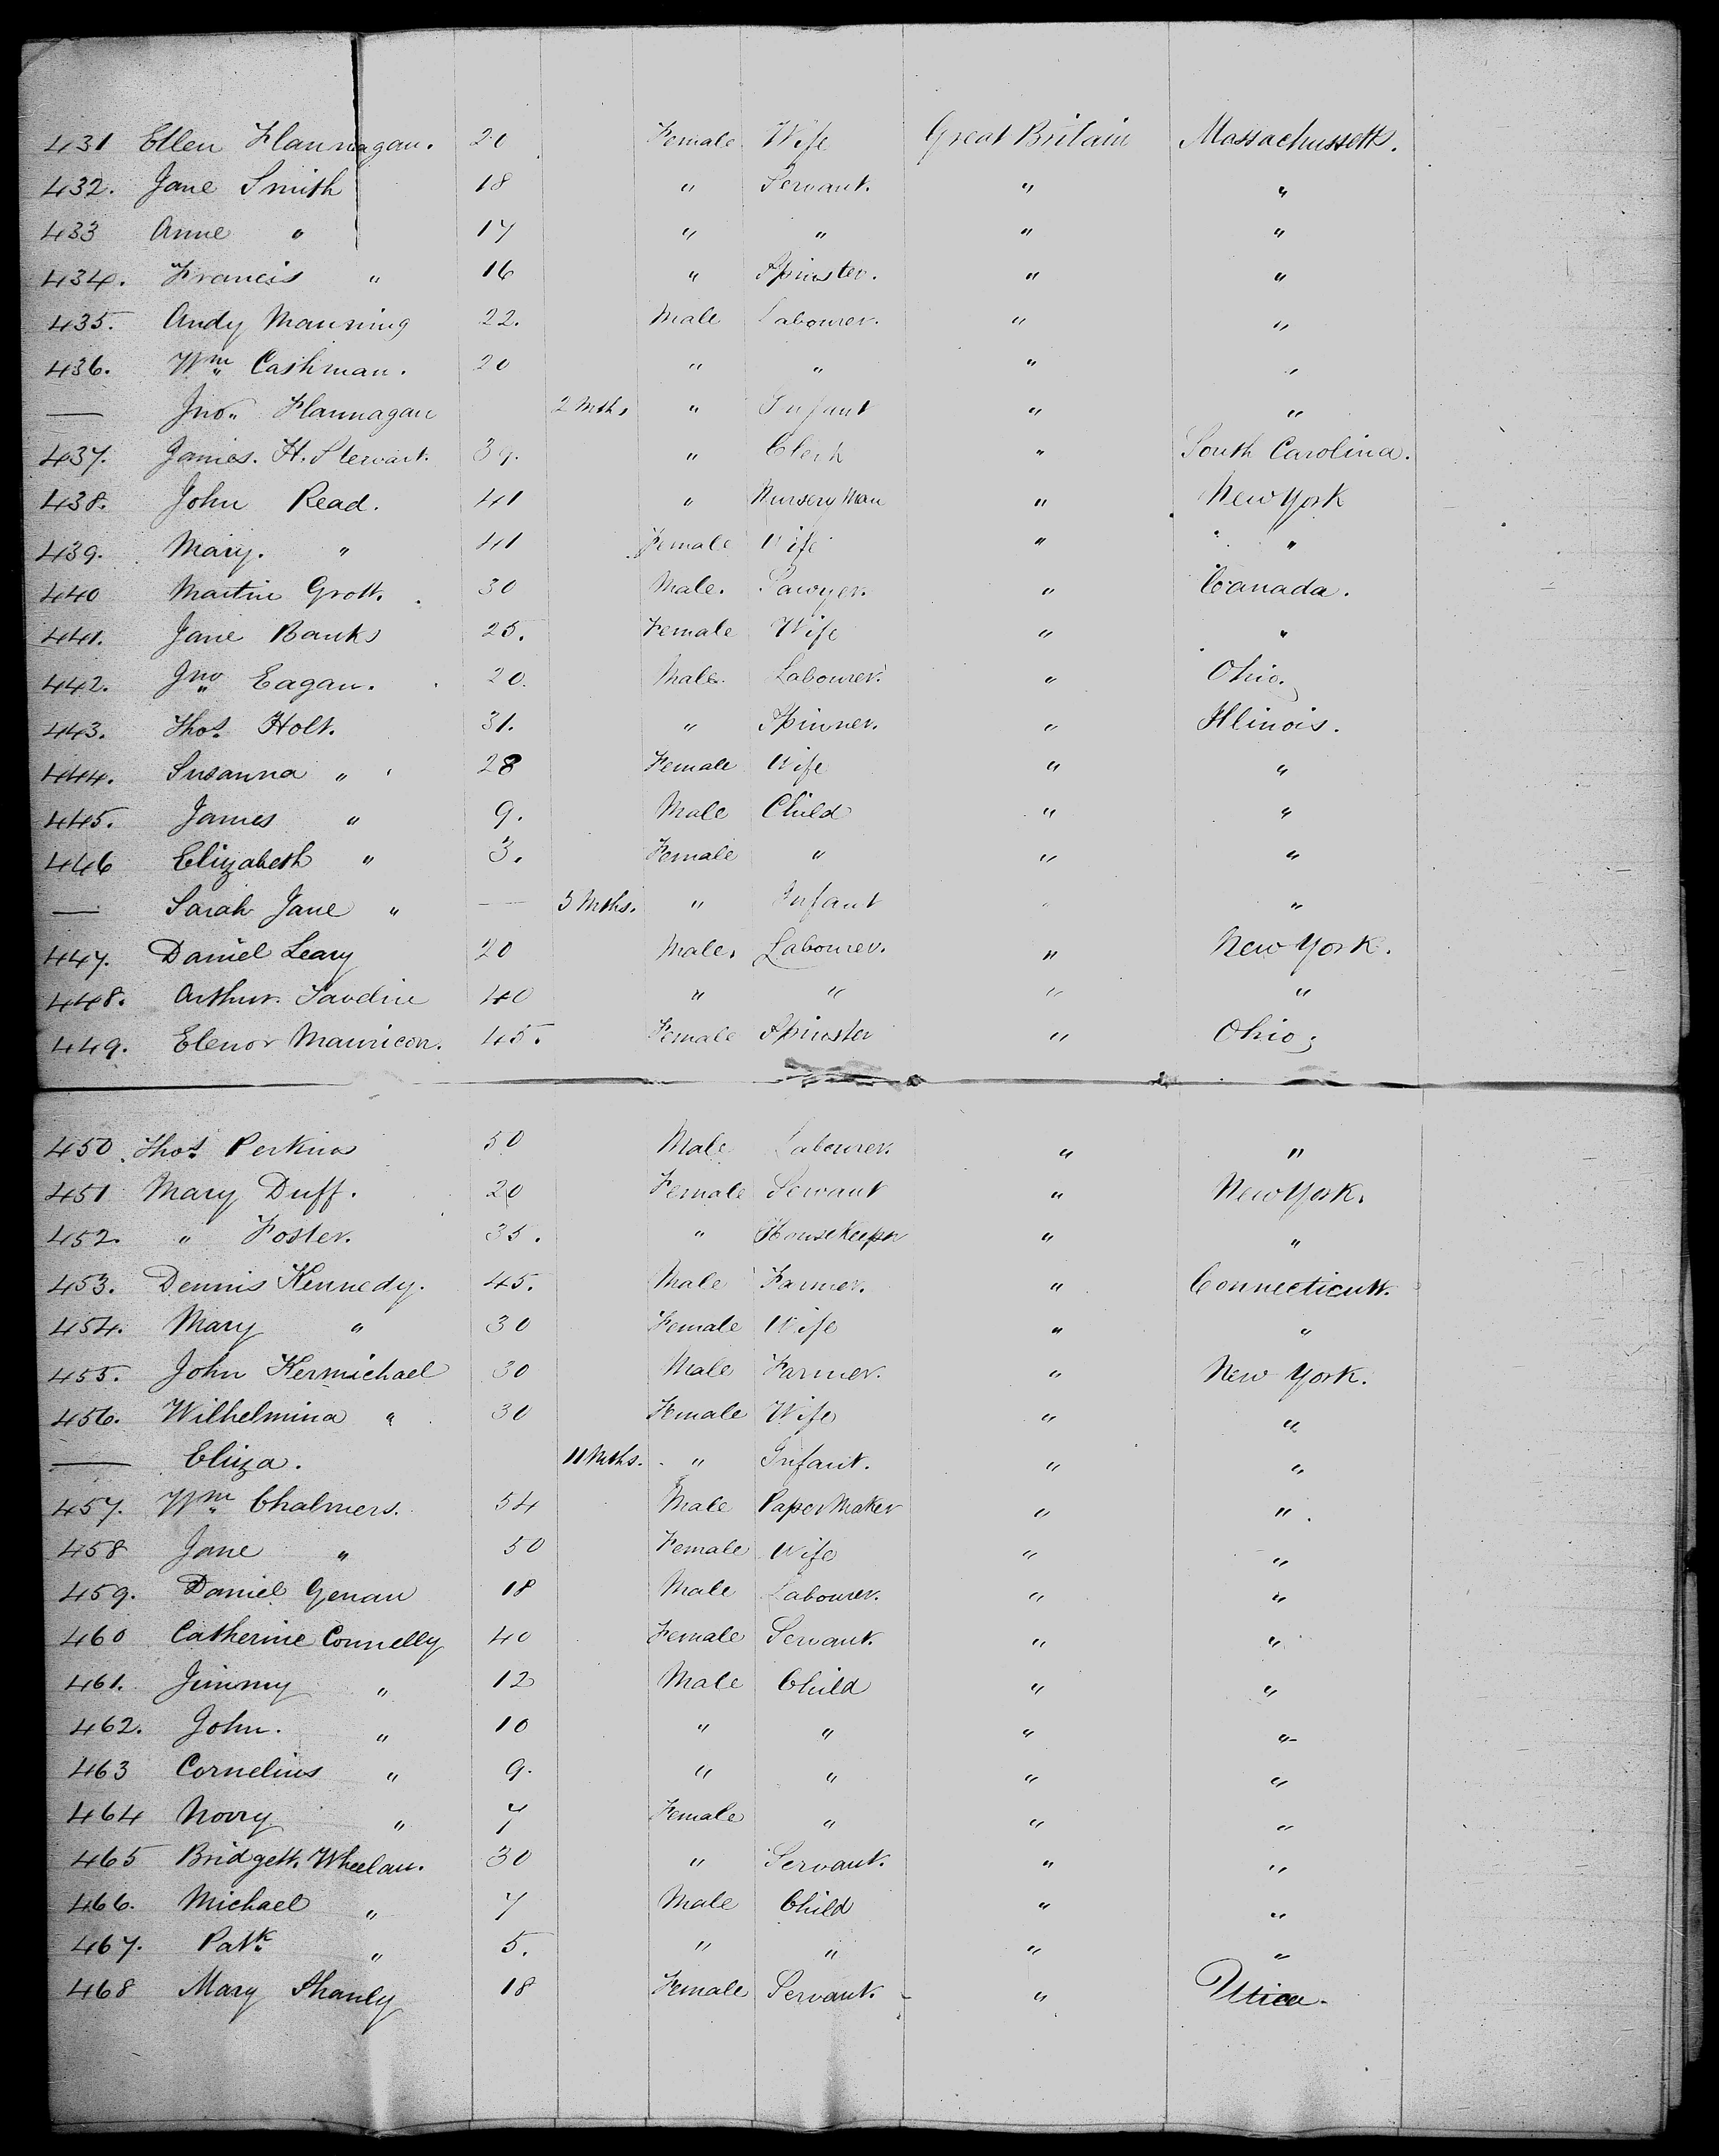 431 Ellen Flannagan. 20 Female Wife Great Britain Massachussetts.
432. Jane Smith 18 " Servant. " "
433 Anne " 17 " " " "
434. Francis " 16 " Spinster. " "
435. Andy Manning 22. Male Labourer. " "
436. Wm Cashman. 20 " " " "
— Jno. Flannagan 2 Mths " Infant " "
437. James. H. Stewart. 39. " Clerk " South Carolina.
438. John Read. 41 " Nursery Man " New York
439. Mary. " 41 Female Wife " "
440 Martin Grott. 30 Male. Sawyer. " Canada.
441. Jane Banks 25. Female Wife " "
442. Jno Eagan. 20. Male. Labourer. " Ohio.
443. Thos. Holt. 31. " Spinner. " Illinois.
444. Susanna " 28 Female Wife " "
445. James " 9. Male Child " "
446 Elizabeth " 3. Female " " "
— Sarah Jane " — 3 Mths. " Infant " "
447. Daniel Leary 20 Male. Labourer. " New York.
448. Arthur 40 " " " "
449. Elenor 45. Female Spinster " Ohio.
450. Thos. Perkins 50 Male Labourer. " "
451 Mary Duff. 20 Female Servant " New York.
452. " Foster. 35. " Housekeeper " "
453. Dennis Kennedy. 45. Male Farmer. " Connecticutt.
454. Mary " 30 Female Wife " "
455. John Kermichael 30 Male Farmer. " New York.
456. Wilhelmina " 30 Female Wife " "
— Eliza. 11 Mths. " Infant. " "
457. Wm Chalmers. 54 Male Paper Maker " "
458 Jane " 50 Female Wife " "
459. Daniel Genan 18 Male Labourer. " "
460 Catherine Connelly 40 Female Servant. " "
461. Jimmy " 12 Male Child " "
462. John. " 10 " " " "
463 Cornelius " 9. " " " "
464 Norry " 7 Female " " "
465 Bridgett. Wheelan. 30 " Servant. " "
466. Michael " 7 Male Child " "
467. Patk. " 5. " " " "
468 Mary Shanly 18 Female Servant. " Utica.